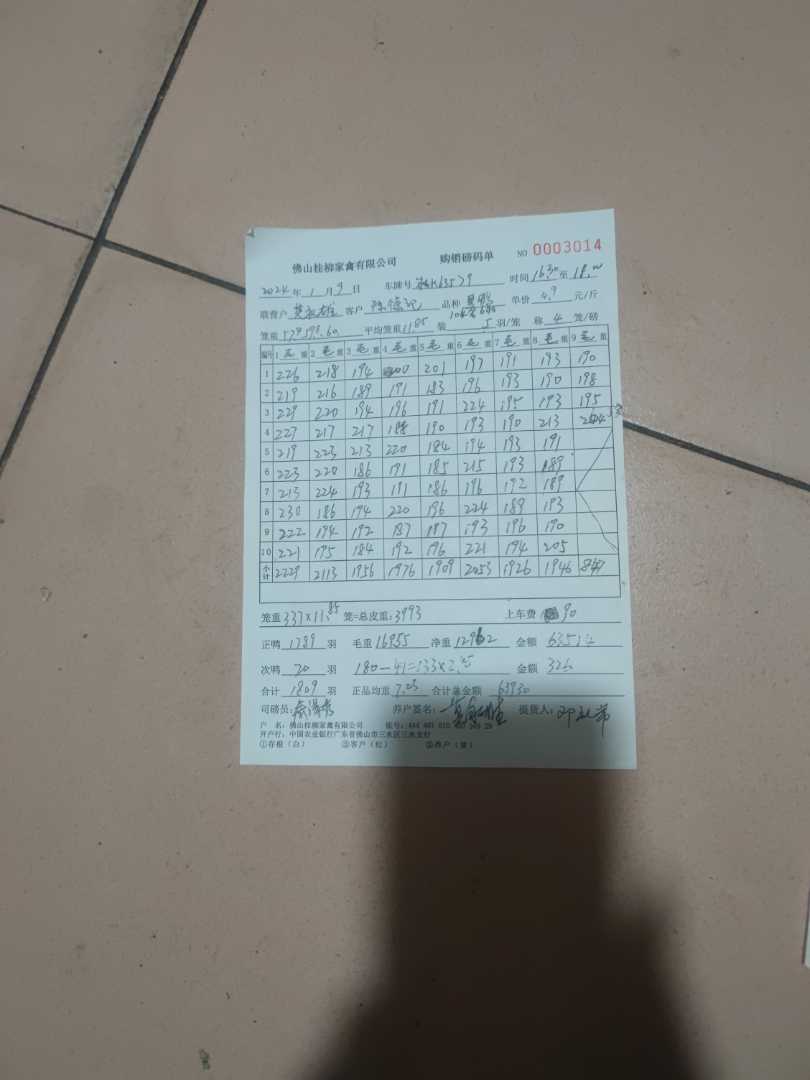 佛山桂柳家禽有限公司 购销磅码单 NO 0003014
2024 年 1 月 9 日 车牌号 时间 16:30 至 18:00
联营户 客户 陈德记 品种 单价 4.9 元/斤
笼重 平均笼重 11.85 装 5 羽/笼 称 4 笼/磅
编号 1 毛 重 2 毛 重 3 毛 重 4 毛 重 5 毛 重 6 毛 重 7 毛 重 8 毛 重 9 毛 重
1 226 218 194 200 201 197 191 193 190
2 219 216 189 191 183 196 193 190 198
3 229 220 194 196 191 224 195 193 195
4 227 217 217 188 190 193 190 213
5 219 223 213 220 184 194 193 191
6 223 220 186 191 185 215 193 189
7 213 224 193 191 186 196 192 189
8 230 186 194 220 196 224 189 193
9 222 194 192 187 187 193 196 190
10 221 195 184 192 196 221 194 205
小计 2229 2113 1956 1976 1909 2053 1926 1946 847
笼重 337×11.85 笼=总皮重: 3993 上车费 90
正鸭 1789 羽 毛重 16955 净重 12962 金额
次鸭 20 羽 金额 326
合计 1809 羽 正品均重 7.25 合计总金额 63930
司磅员: 养户签名: 提货人:
户 名: 佛山桂柳家禽有限公司 账号:
开户行: 中国农业银行广东省佛山市三水区三水支行
①存根（白） ②客户（红） ③养户（黄）